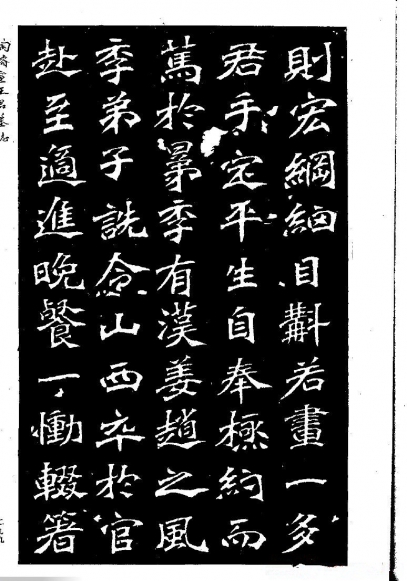 則宏綱細目斠若畫一多
君手定平生自奉極約而
篤於晜季有漢姜趙之風
季弟子詵令山西卒於官
赴至適進晚餐一慟輟箸